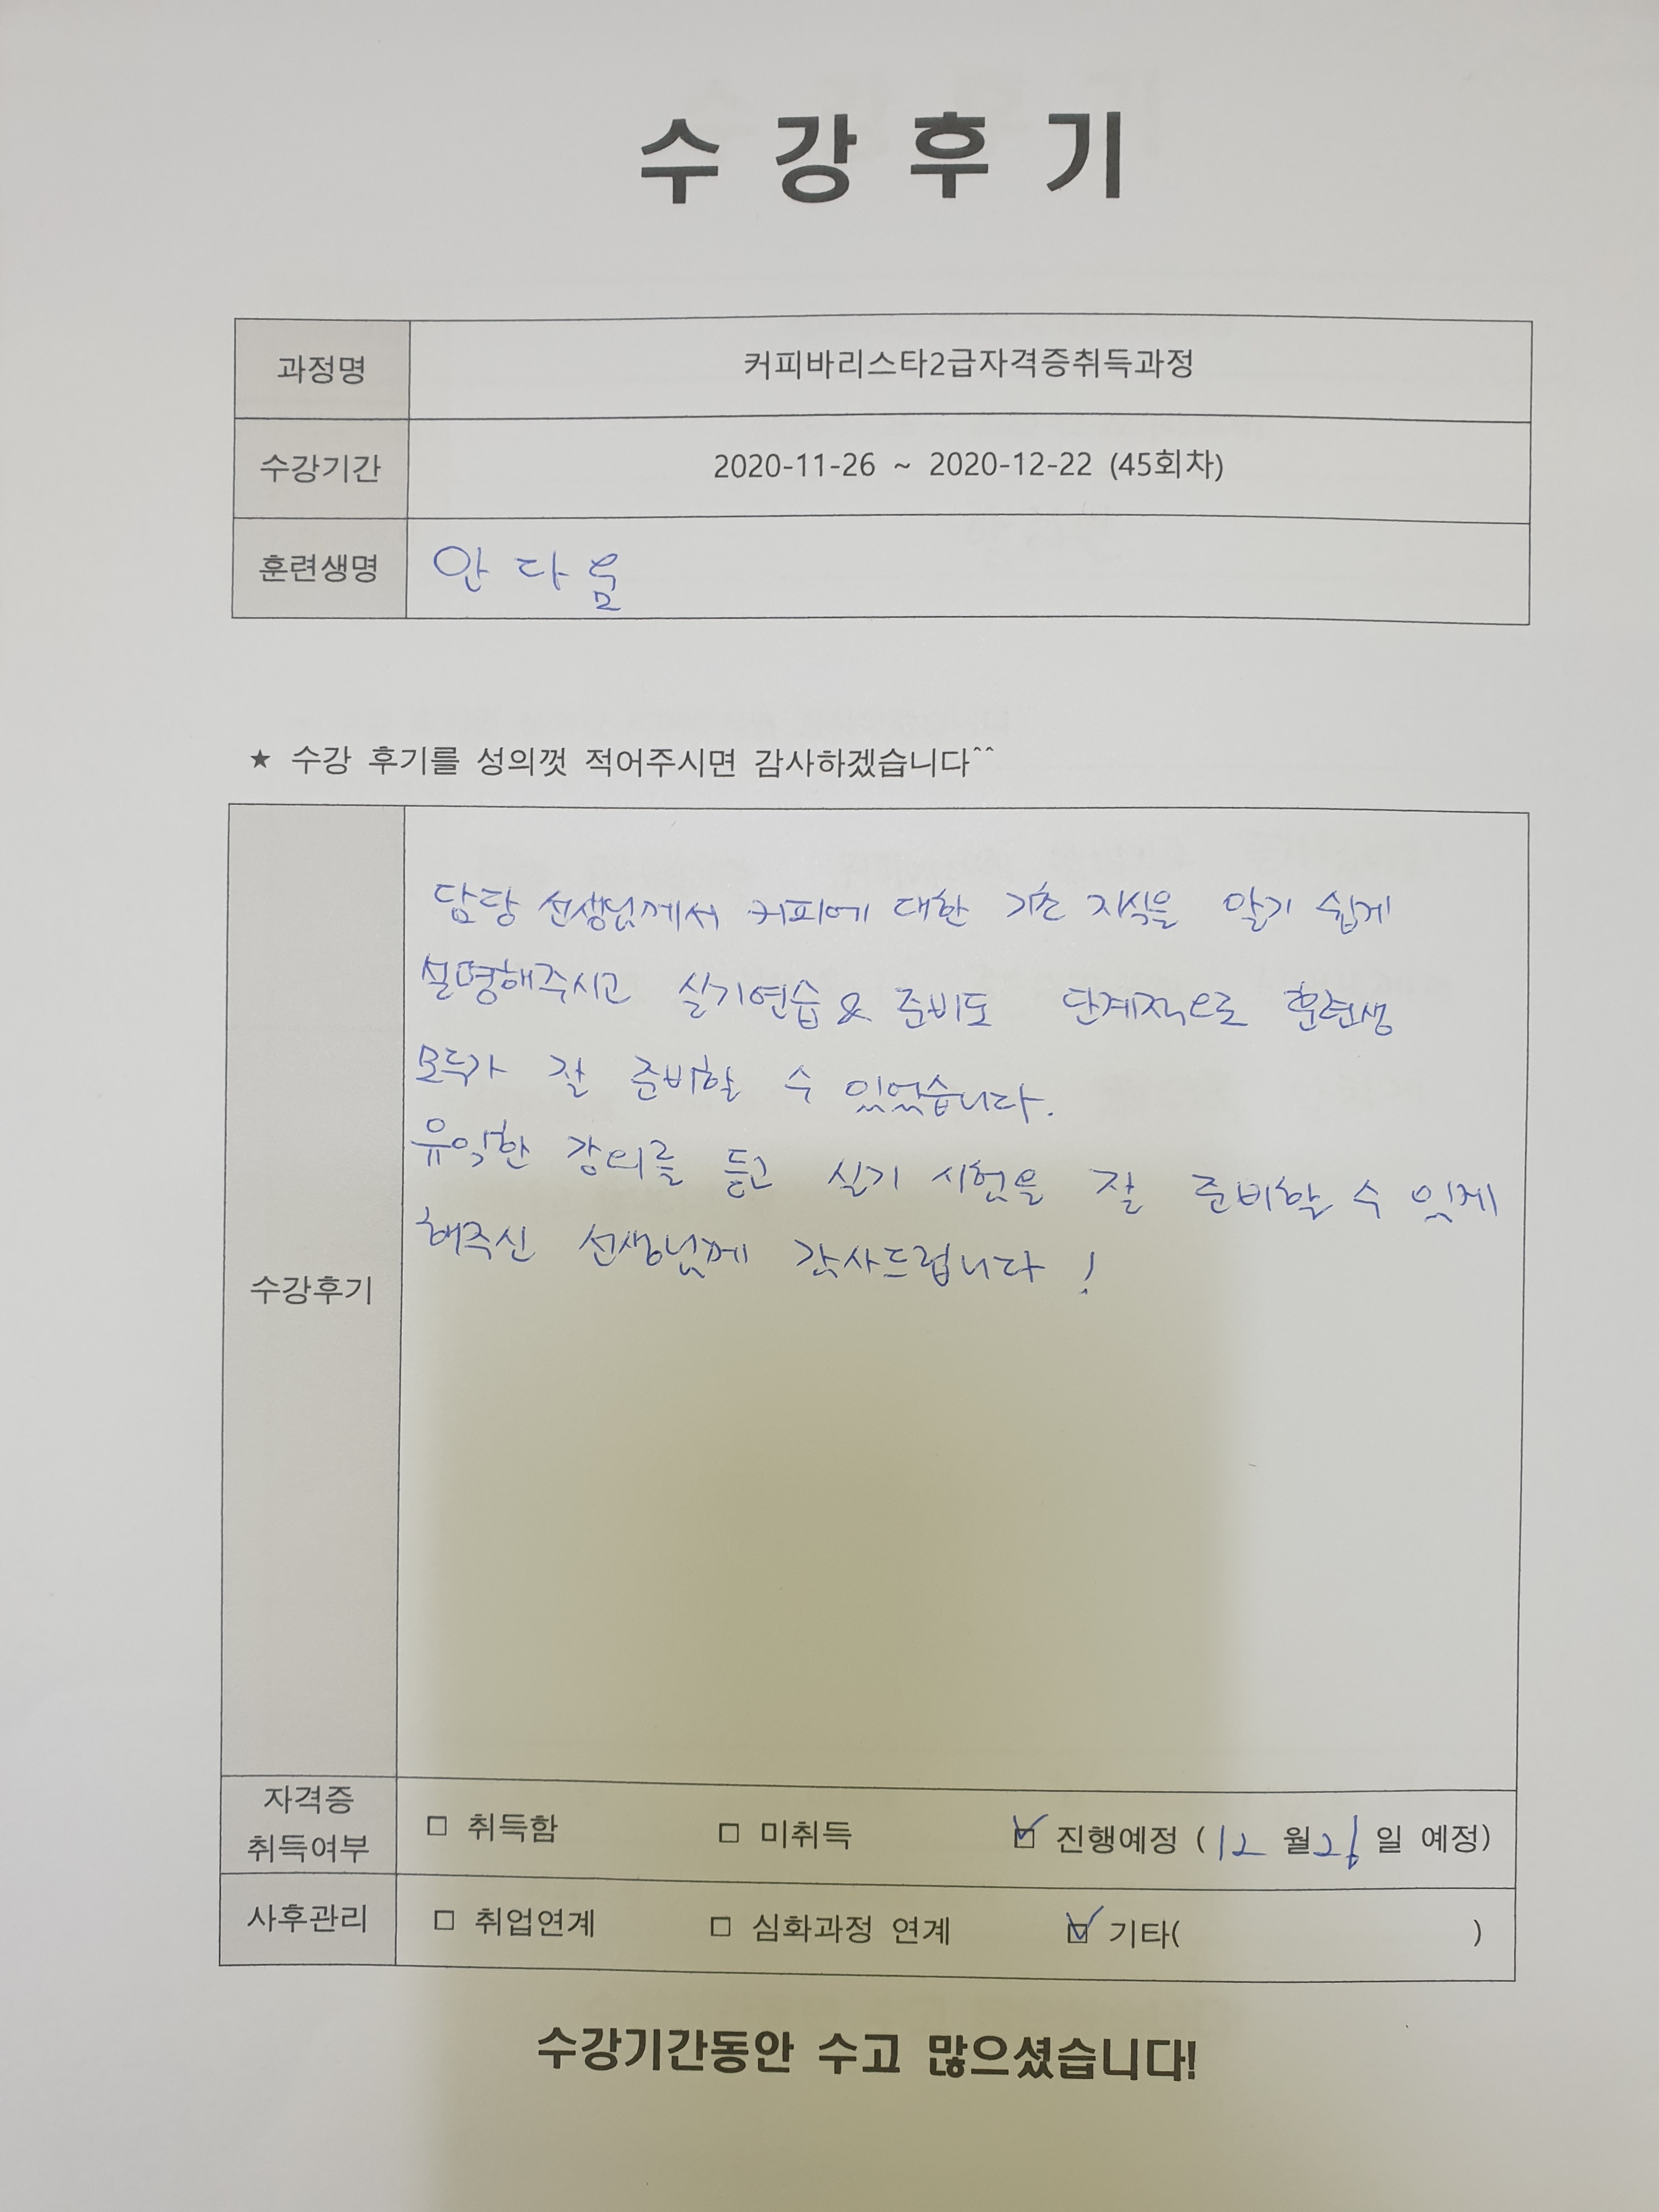 수강후기
과정명 커피바리스타2급자격증취득과정
수강기간 2020-11-26 ~ 2020-12-22 (45회차)
훈련생명 안다움
★ 수강 후기를 성의껏 적어주시면 감사하겠습니다^^
담당 선생님께서 커피에 대한 기초 지식을 알기 쉽게
설명해주시고 실기연습 & 준비도 단계적으로 훈련생
모두가 잘 준비할 수 있었습니다.
유익한 강의를 듣고 실기 시험을 잘 준비할 수 있게
해주신 선생님께 감사드립니다!
수강후기
자격증
취득여부 □ 취득함 □ 미취득 ☑ 진행예정 (12 월 26 일 예정)
사후관리 □ 취업연계 □ 심화과정 연계 ☑ 기타( )
수강기간동안 수고 많으셨습니다!